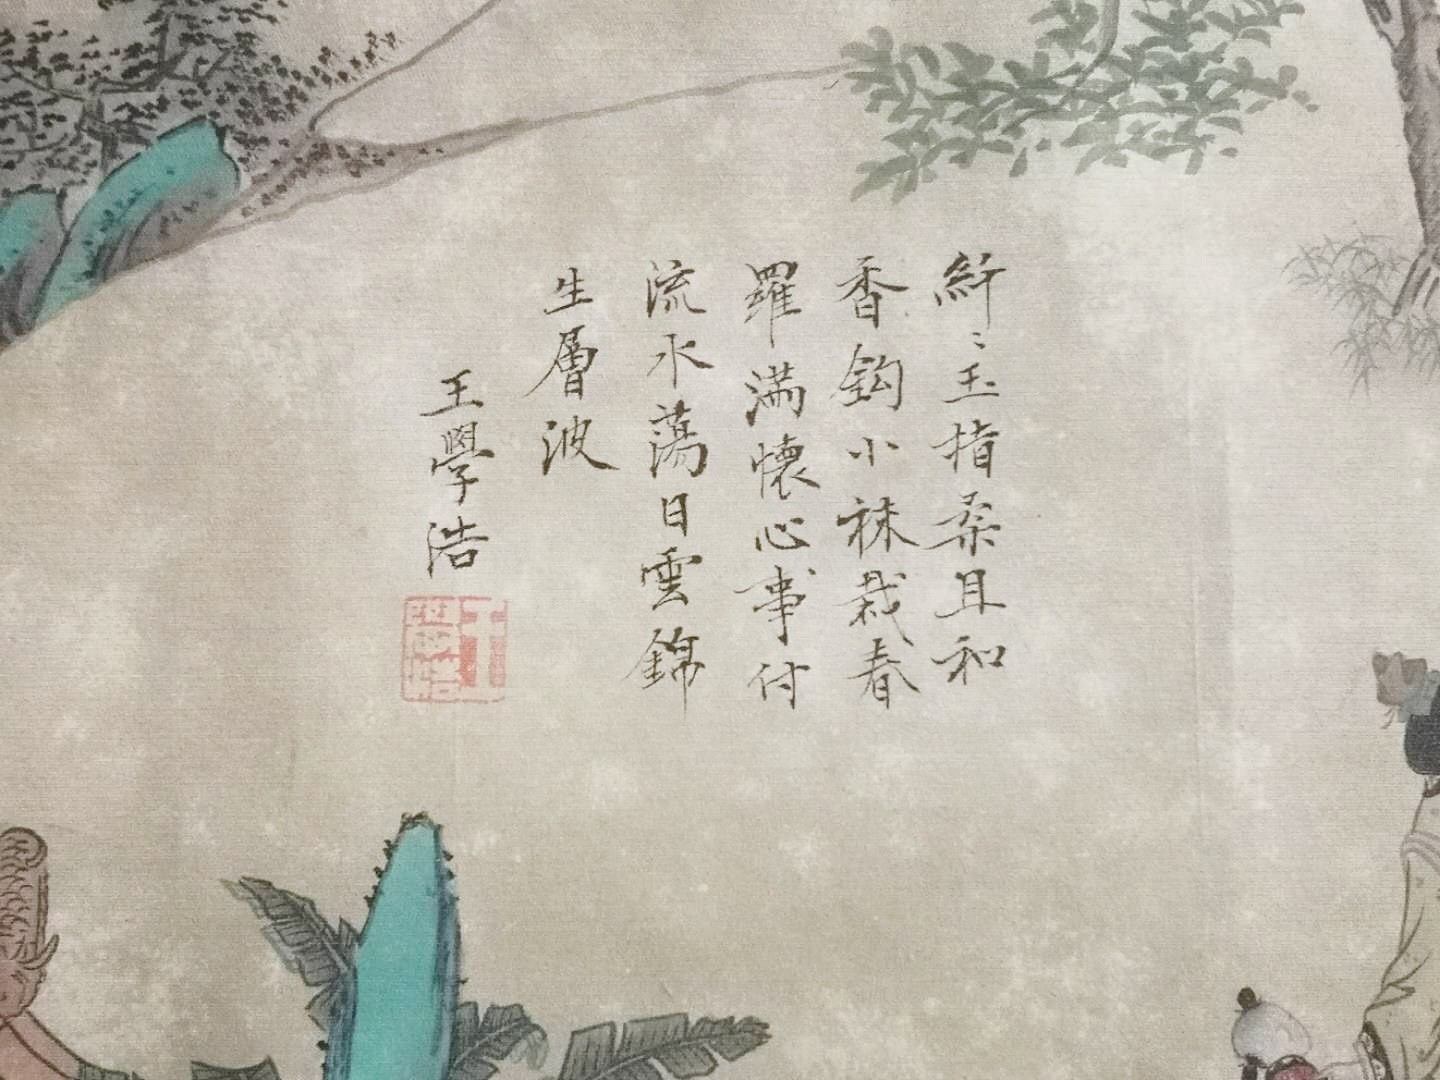 纤〻玉指柔且和
香鈎小袜裁春
羅满懷心事付
流水蕩日雲錦
生層波
王學浩